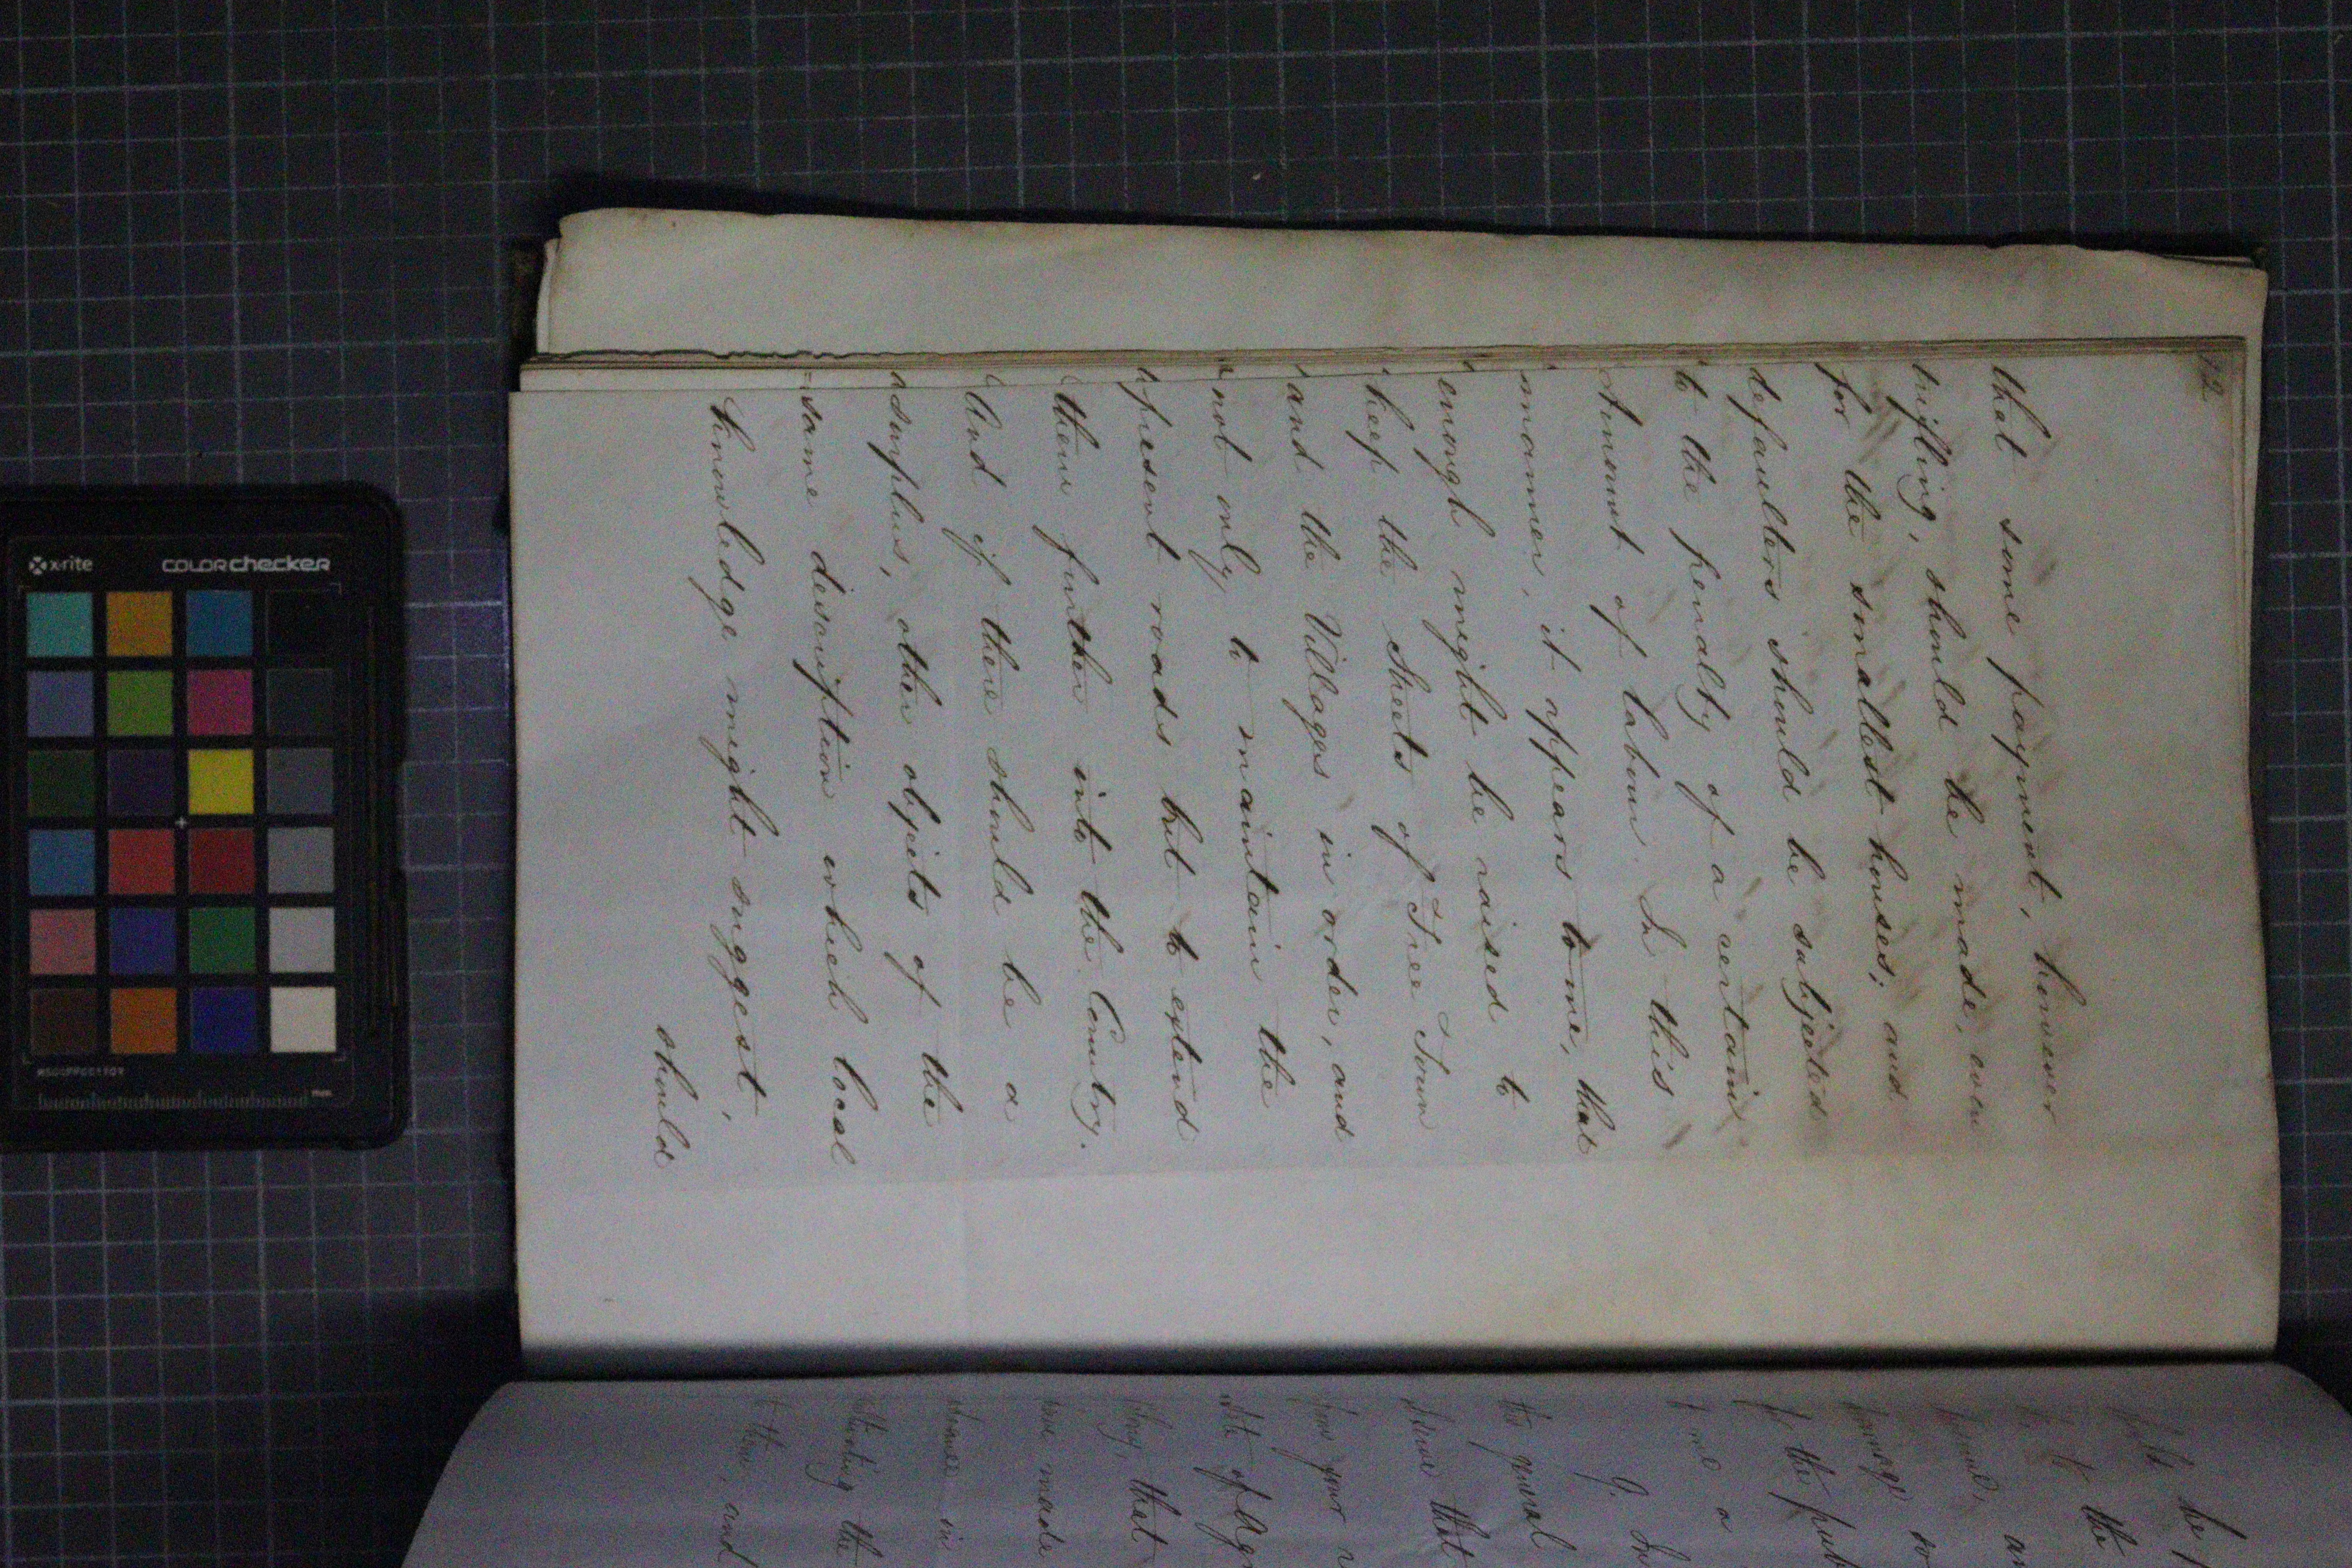 12
that some payment, however
trifling, should be made, even
for the smallest houses; and
defaulters should be subjected
to the penalty of a certain
Amount of labour. In this
manner, it appears to me, that
enough might be raised to
keep the Streets of Free Town
and the Villages in order, and
not only to maintain the
present roads but to extend
them further into the Country.
And if there should be a
surplus, other objects of the
same description which local
knowledge might suggest,
should
be
the
the pub
me a
I.
the general
that
from your
of Agr
that
have made
in
the
them, and
x-rite colorchecker